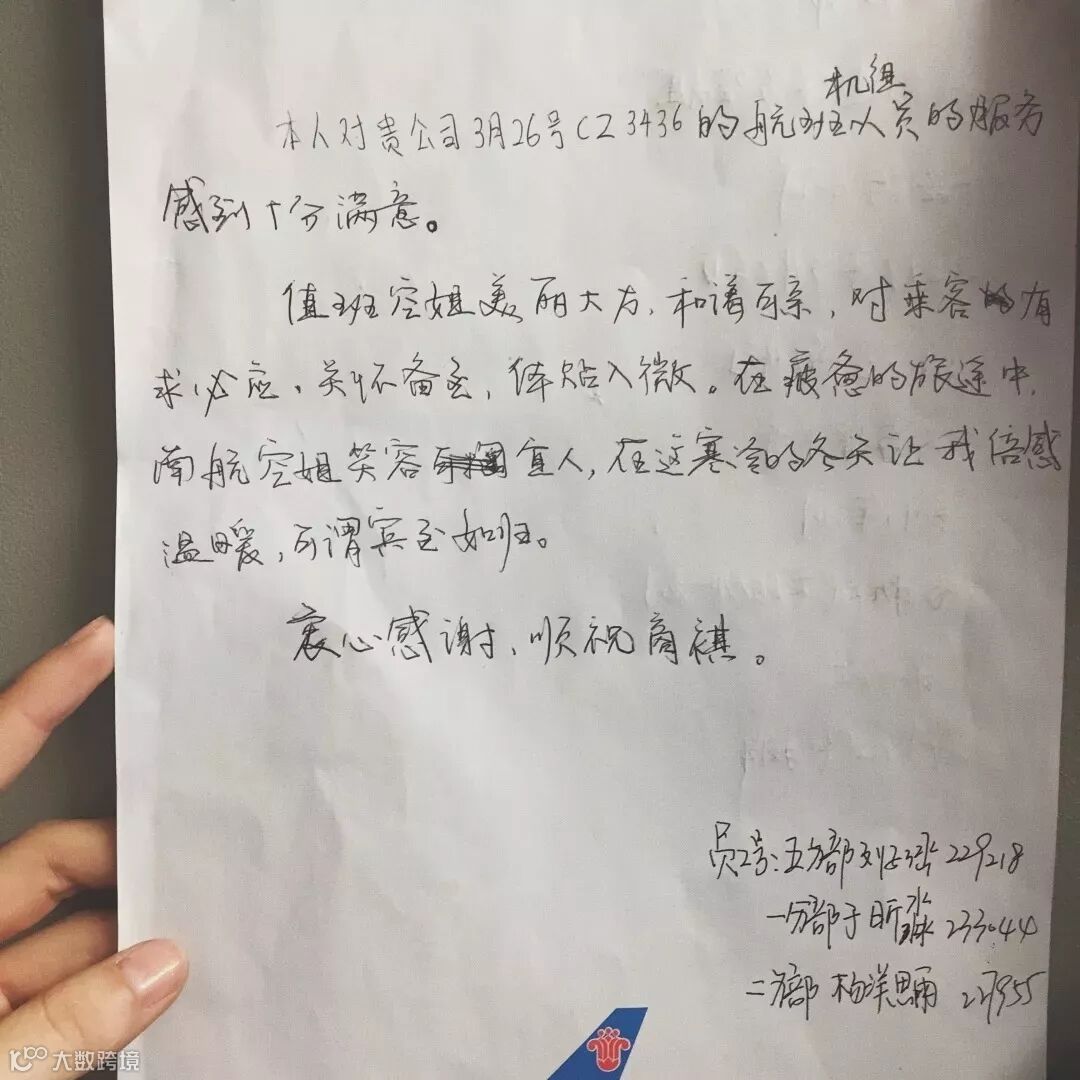 机组
本人对贵公司3月26号CZ3436的航班人员的服务
感到十分满意。
值班空姐美丽大方,和谐可亲,对乘客有
求必应、关怀备至,体贴入微。在疲惫的旅途中,
南航空姐笑容宜人,在这寒冷的冬天让我倍感
温暖,可谓宾至如归。
衷心感谢,顺祝商祺。
员工号:五分部 229218
一分部于昕淼 233044
二分部 杨洋 227955
大数跨境